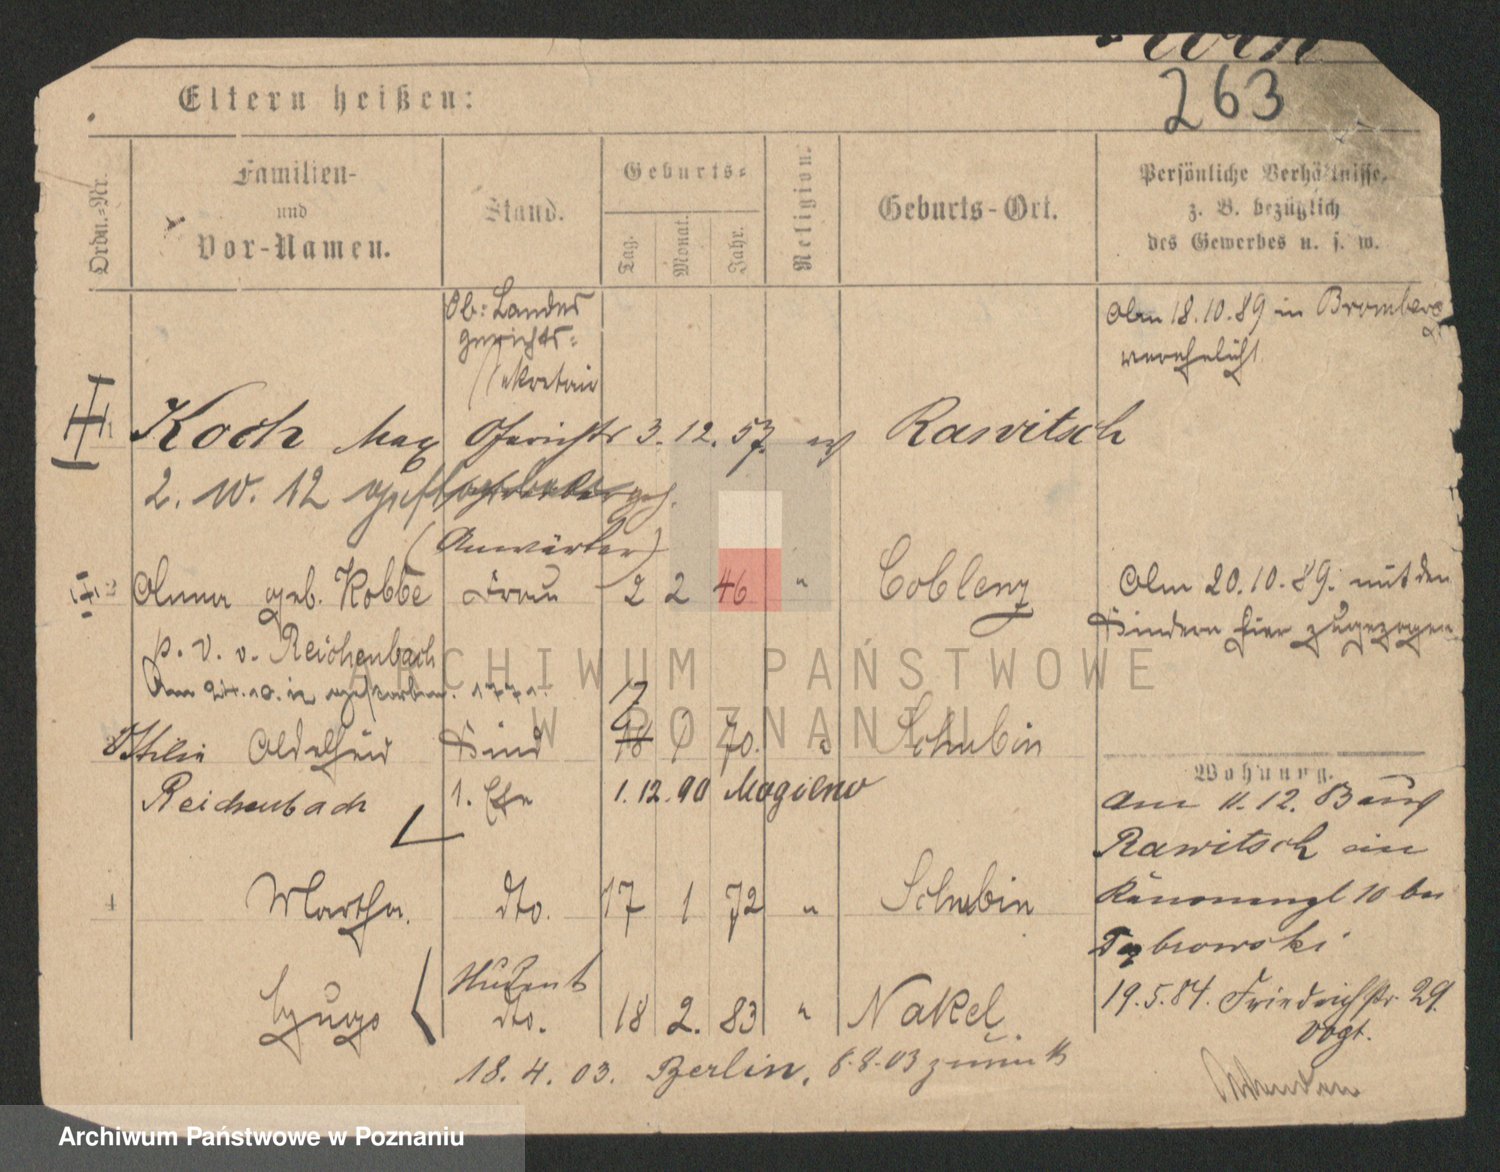 263
Eltern heißen:
Ordn.-Nr.
Familien-
und
Vor-Namen.
Stand.
Geburts-
Tag.
Monat.
Jahr.
Religion.
Geburts-Ort.
Persönliche Verhältnisse,
z. B. bezüglich
des Gewerbes u. s. w.
Ob: Landes
gerichts-
Sekretair
Am 18.10.89 in Bromberg
verehelicht
Koch Max Gerichts 3. 12. 57. Rawitsch
2. 10. 12
(Anwärter)
Anna geb. Kobbe Frau 2 2 46 " Coblenz
Am 20.10.89. mit den
Kindern hier zugezogen
p. v. v. Reichenbach
Am 24.10.12 gestorben.
17
Ottilie Adelheid Kind 18 1 70. " Schubin
Reichenbach 1. Ehe 1.12.90 Mogilno
Wohnung.
Am 11.12.83 aus
Rawitsch in
10 bei
4 Martha. dto. 17 1 72 " Schubin
Student
Hugo dto. 18 2. 83 " Nakel
19.5.84. Friedrichstr. 29.
Vogt.
18. 4. 03. Berlin, 8.8.03 zurück
ARCHIWUM PAŃSTWOWE
W POZNANIU
Archiwum Państwowe w Poznaniu